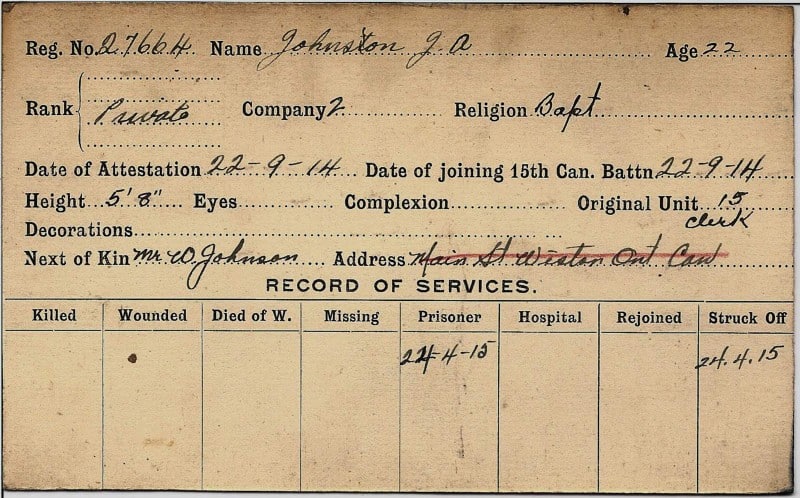 Reg. No. 27664 Name Johnston J. A Age 22
Rank Private Company 2 Religion Bapt.
Date of Attestation 22-9-14 Date of joining 15th Can. Battn 22-9-14
Height 5' 8" Eyes Complexion Original Unit 15
clerk
Decorations
Next of Kin Mr W Johnson Address Main St Weston Ont Can
RECORD OF SERVICES.
Killed Wounded Died of W. Missing Prisoner Hospital Rejoined Struck Off
24-4-15 24.4.15